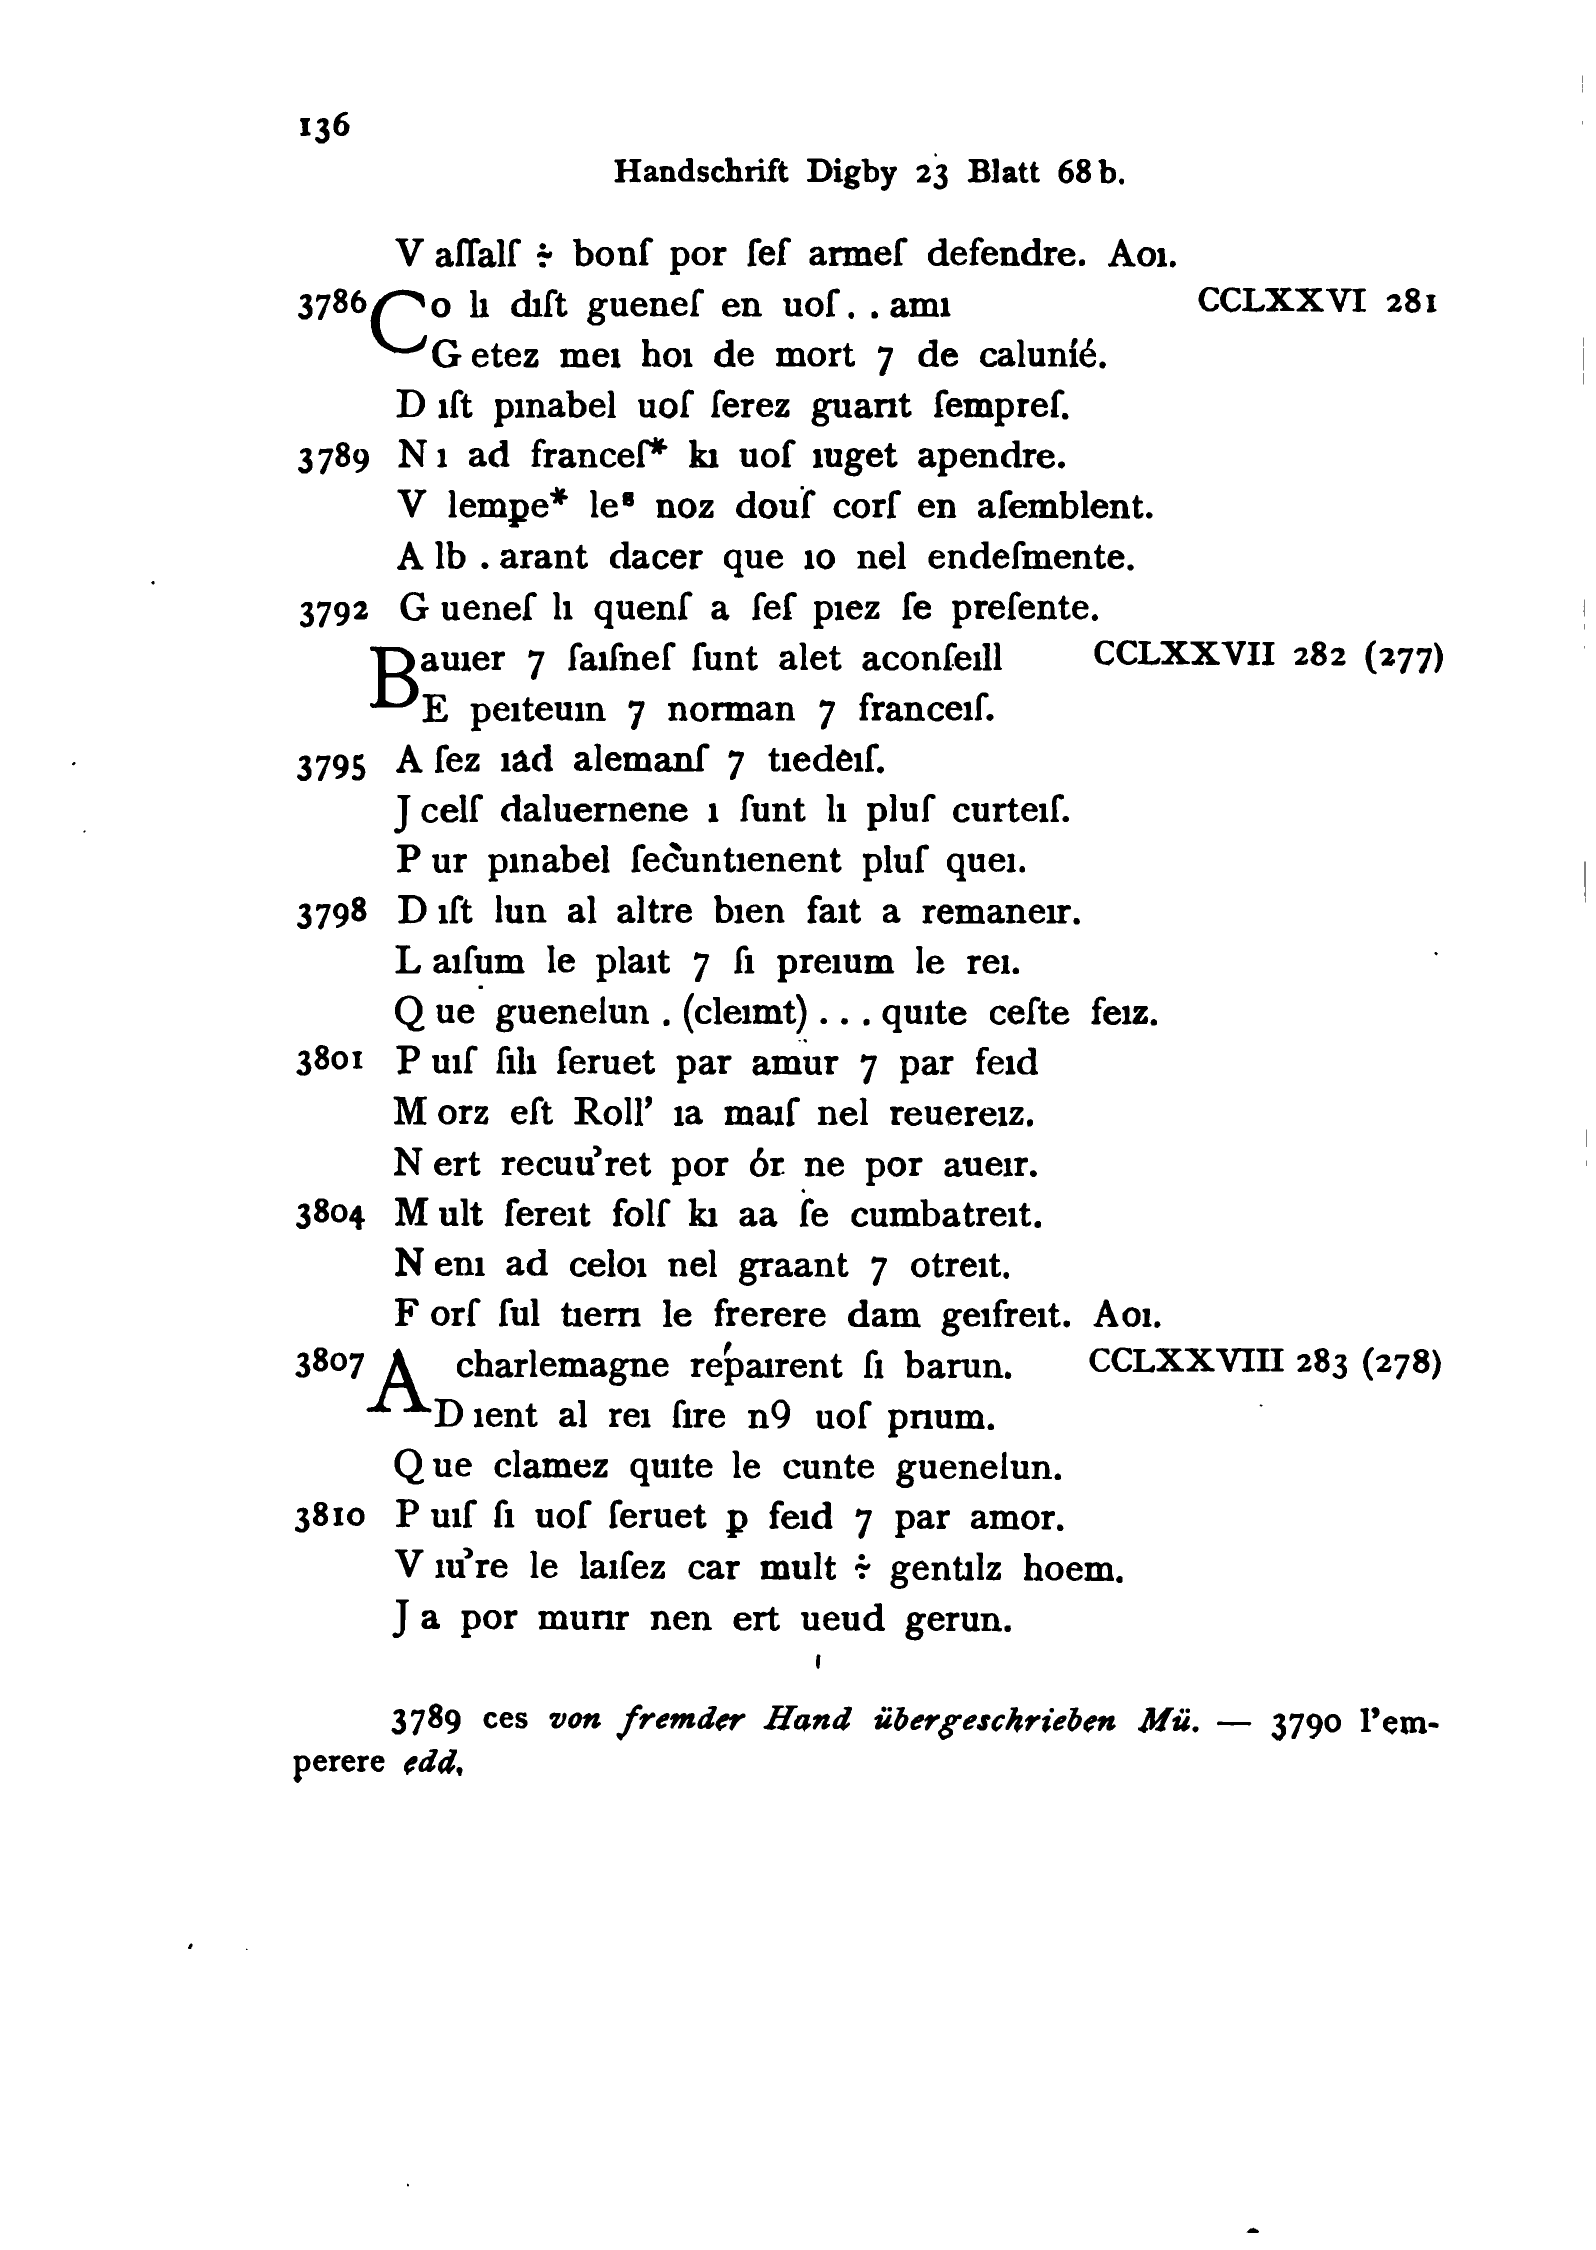 136
Handschrift Digby 23 Blatt 68 b.
V aſſalſ ÷ bonſ por ſeſ armeſ defendre. Aoı.
3786 Co lı dıſt gueneſ en uoſ. . amı CCLXXVI 281
G etez meı hoı de mort 7 de caluníé.
D ıſt pınabel uoſ ſerez guarıt ſempreſ.
3789 N ı ad franceſ* kı uoſ ıuget apendre.
V lempe* leˢ noz douſ corſ en aſemblent.
A lb . arant dacer que ıo nel endeſmente.
3792 G ueneſ lı quenſ a ſeſ pıez ſe preſente.
Bauıer 7 ſaıſneſ ſunt alet aconſeıll CCLXXVII 282 (277)
E peıteuın 7 norman 7 franceıſ.
3795 A ſez ıad alemanſ 7 tıedeıſ.
J celſ daluernene ı ſunt lı pluſ curteıſ.
P ur pınabel ſecuntıenent pluſ queı.
3798 D ıſt lun al altre bıen faıt a remaneır.
L aıſum le plaıt 7 ſı preıum le reı.
Q ue guenelun . (cleımt) . . . quıte ceſte feız.
3801 P uıſ ſılı ſeruet par amur 7 par feıd
M orz eſt Roll’ ıa maıſ nel reuereız.
N ert recuu’ret por ór ne por aueır.
3804 M ult ſereıt folſ kı aa ſe cumbatreıt.
N enı ad celoı nel graant 7 otreıt.
F orſ ſul tıerrı le frerere dam geıfreıt. Aoı.
3807 A charlemagne repaırent ſı barun. CCLXXVIII 283 (278)
D ıent al reı ſıre n9 uoſ prıum.
Q ue clamez quıte le cunte guenelun.
3810 P uıſ ſı uoſ ſeruet p feıd 7 par amor.
V ıu’re le laıſez car mult ÷ gentılz hoem.
J a por murır nen ert ueud gerun.
3789 ces von fremder Hand übergeschrieben Mü. — 3790 l’em-
perere edd.